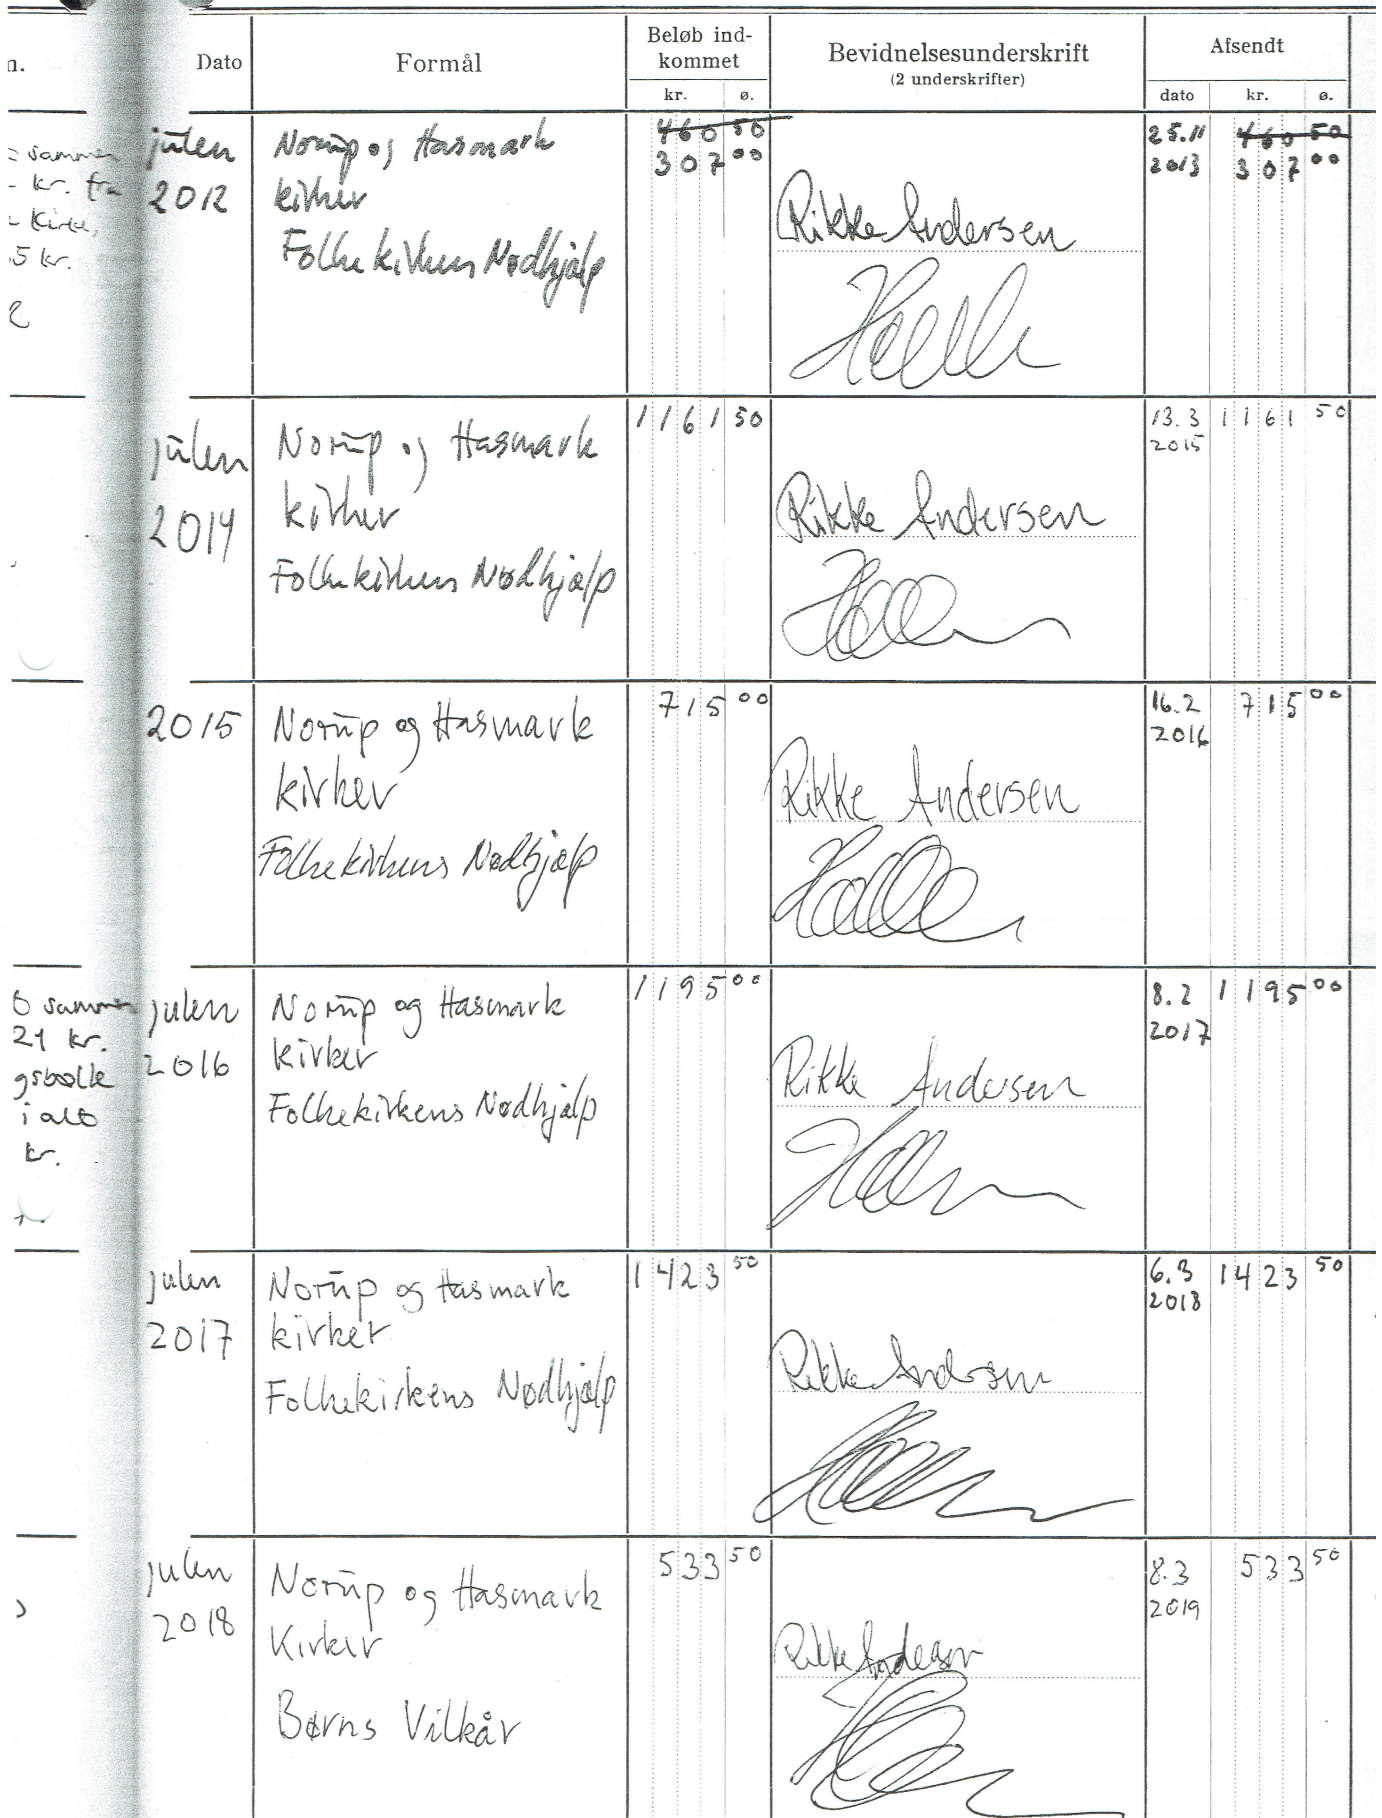 Dato
Formål
Beløb ind-
kommet
kr. ø.
Bevidnelsesunderskrift
(2 underskrifter)
Afsendt
dato kr. ø.
sammen
kr. fra
Kirke,
5 kr.
julen
2012
Norup og Hasmark
kirker
Folkekirkens Nødhjælp
460 50
307 00
Rikke Andersen
25.11
2013
460 50
307 00
julen
2014
Norup og Hasmark
kirker
Folkekirkens Nødhjælp
1161 50
Rikke Andersen
13.3
2015
1161 50
2015
Norup og Hasmark
kirker
Folkekirkens Nødhjælp
715 00
Rikke Andersen
16.2
2016
715 00
sammen
21 kr.
gsbølle
i alt
kr.
julen
2016
Norup og Hasmark
kirker
Folkekirkens Nødhjælp
1195 00
Rikke Andersen
8.2
2017
1195 00
julen
2017
Norup og Hasmark
kirker
Folkekirkens Nødhjælp
1423 50
Rikke Andersen
6.3
2018
1423 50
julen
2018
Norup og Hasmark
Kirker
Børns Vilkår
533 50
Rikke Andersen
8.3
2019
533 50